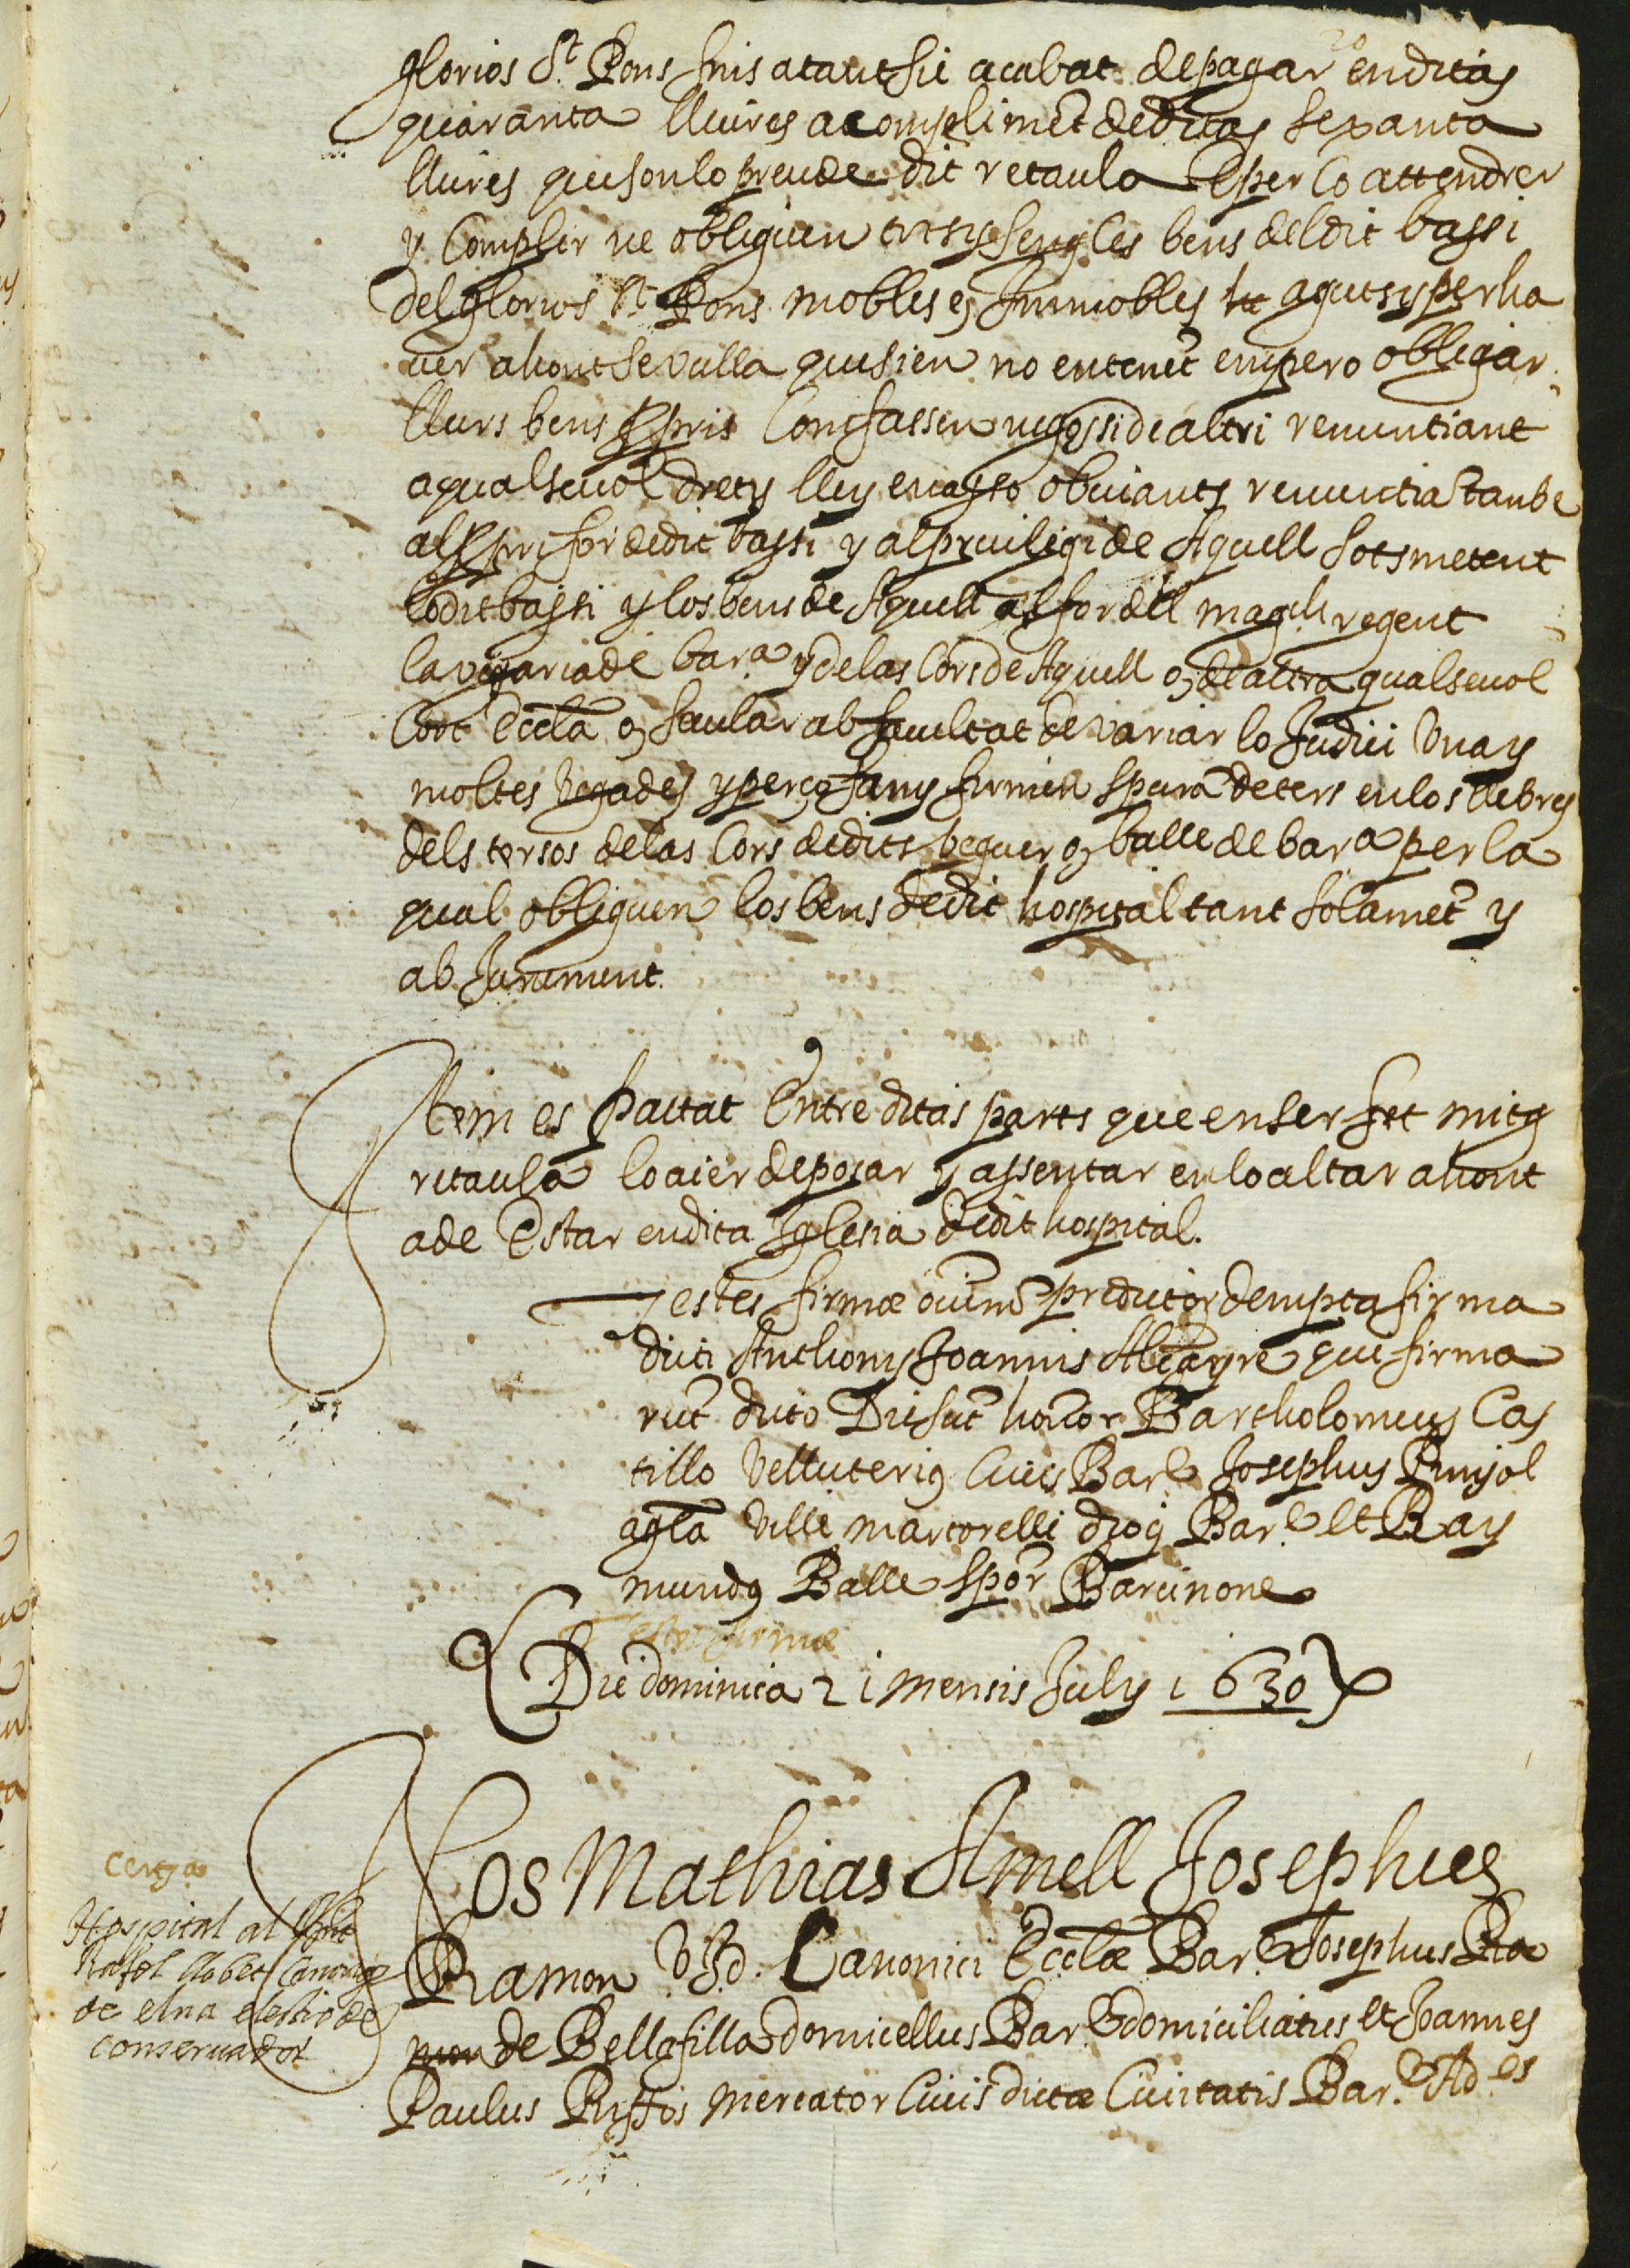 glorios St. Pons fins atant sie acabat de pagar en ditas
quaranta lliures a compliment de ditas sexanta
lliures que son lo preu de dit retaula E per lo attendrer
y Complir ne obliguen tots y sengles bens del dit bassi
del glorios St Pons mobles e Immobles haguts y per ha
uer ahont se vulla que sien no entenēt empero obligar
llurs bens ppris Com fassen negossi de altri renuntiant
a qualseuol drets lleys en asso obuiants renuntiāt tanbe
al ppri for de dit bassi y al priuiligi de Aquell sotsmetent
lo dit bassi y los bens de Aquell al for del magch regent
la vegaria de bara y de las Cors de Aquell o de altra qualseuol
Cort Eccla o secular ab facultat de variar lo Judici Vna y
moltes vegades y perço fan y firmen spūra de ters en los llibres
dels tersos de las Cors de dits veguer o balle de bara per la
qual obliguen los bens de dit hospital tant solamēt y
ab Jurament.
Item es pactat Entre ditas parts que en ser fet mitg
retaula lo aie de posar y assentar en lo altar ahont
a de Estar en dita Iglesia de dit hospital.
Testes firmæ oium predictor dempta firma
dicti Anthonij Joannis que firma
rūt dicto Die sūt honor Bartholomeus Cas
tillo velluterius Ciuis Bare Josephus Pujol
agla ville martorelli diog Bare et Ray
mundus Balle spōr Barcinone
Testes firmæ
Die dominica 21 mensis July 1630
Nos Mathias Amell Josephus
Ramon V.J.d. Canonici Ecclæ Bare Josephus Ra
mon de Bellafilla domicellus Bare domiciliatus et Joannes
Paulus Riffos mercator Ciuis dictæ Ciuitatis Bare Ad.es
Hospital al
Rafel llobet Canonge
de elna electio de
conseruador